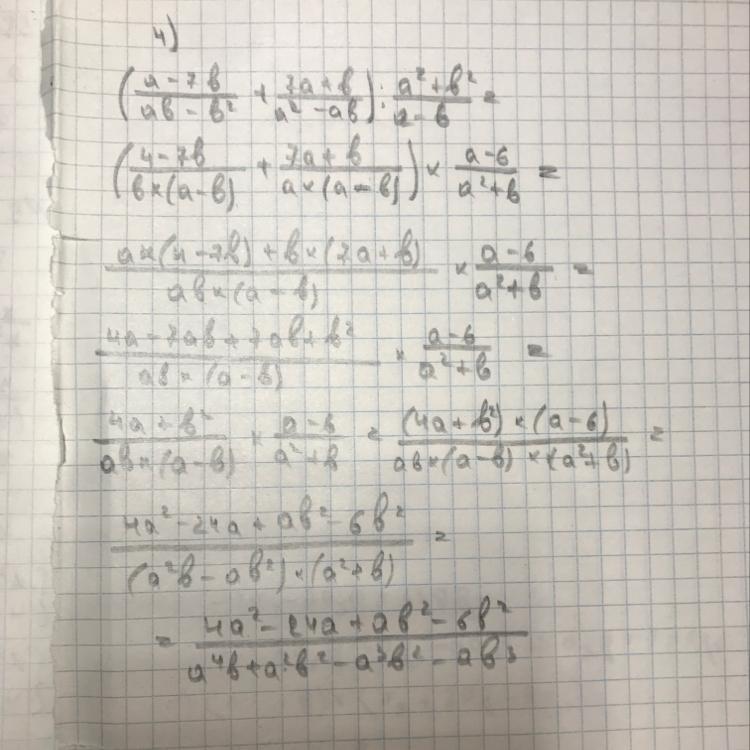 4)
(a-7b/ab-b² + 7a+b/a²-ab) : a²+b²/a-b =
(4-7b/b×(a-b) + 7a+b/a×(a-b)) × a-6/a²+b =
a×(4-7b)+b×(7a+b)/ab×(a-b) × a-6/a²+b =
4a-7ab+7ab+b²/ab×(a-b) × a-6/a²+b =
4a+b²/ab×(a-b) × a-6/a²+b = (4a+b²)×(a-6)/ab×(a-b)×(a²+b) =
4a²-24a+ab²-6b²/(a²b-ab²)×(a²+b) =
= 4a²-24a+ab²-6b²/a⁴b+a²b²-a³b²-ab³